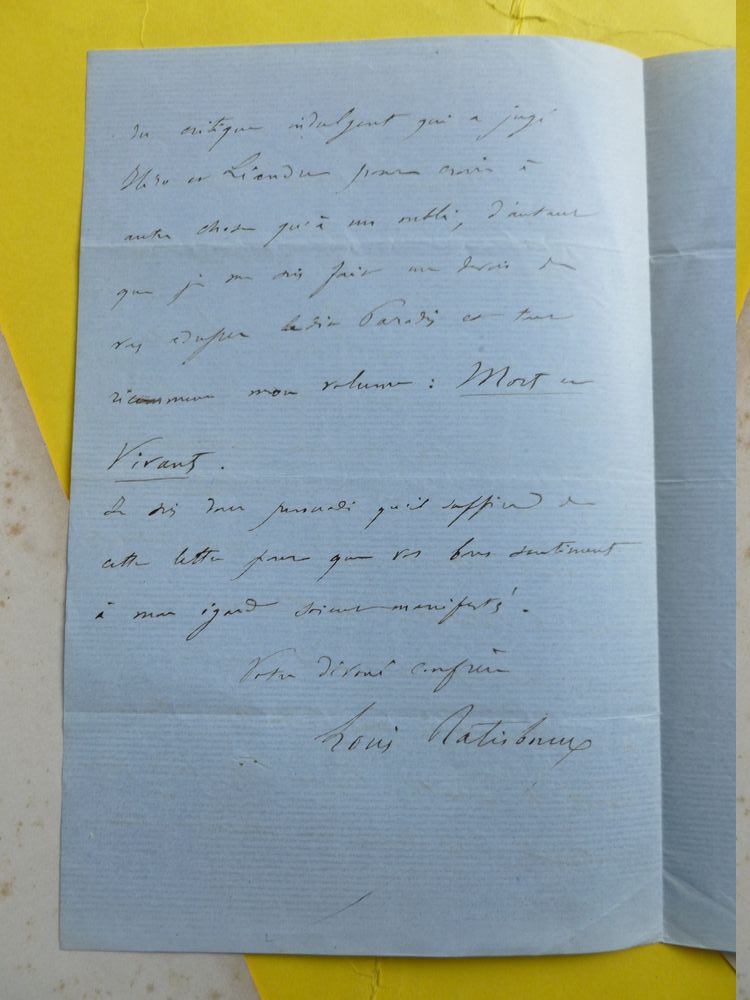 du critique indulgent qui a jugé
Héro et Léandre pour croire à
autre chose qu'à un oubli, d'autant
que je me suis fait un devoir de
vous adresser ledit Paradis et tout
récemment mon volume : Morts et
Vivants.
Je suis donc persuadé qu'il suffira de
cette lettre pour que vos bons sentiments
à mon égard soient manifestés.
Votre dévoué confrère
Louis Ratisbonne